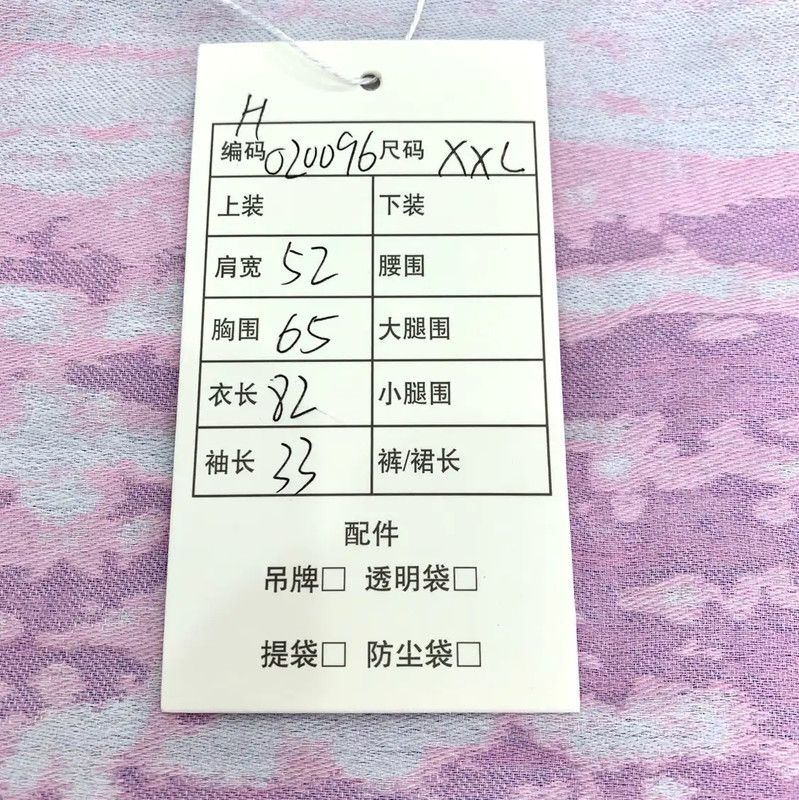 H
编码 020096 尺码 XXL
上装 下装
肩宽 52 腰围
胸围 65 大腿围
衣长 82 小腿围
袖长 33 裤/裙长
配件
吊牌□ 透明袋□
提袋□ 防尘袋□